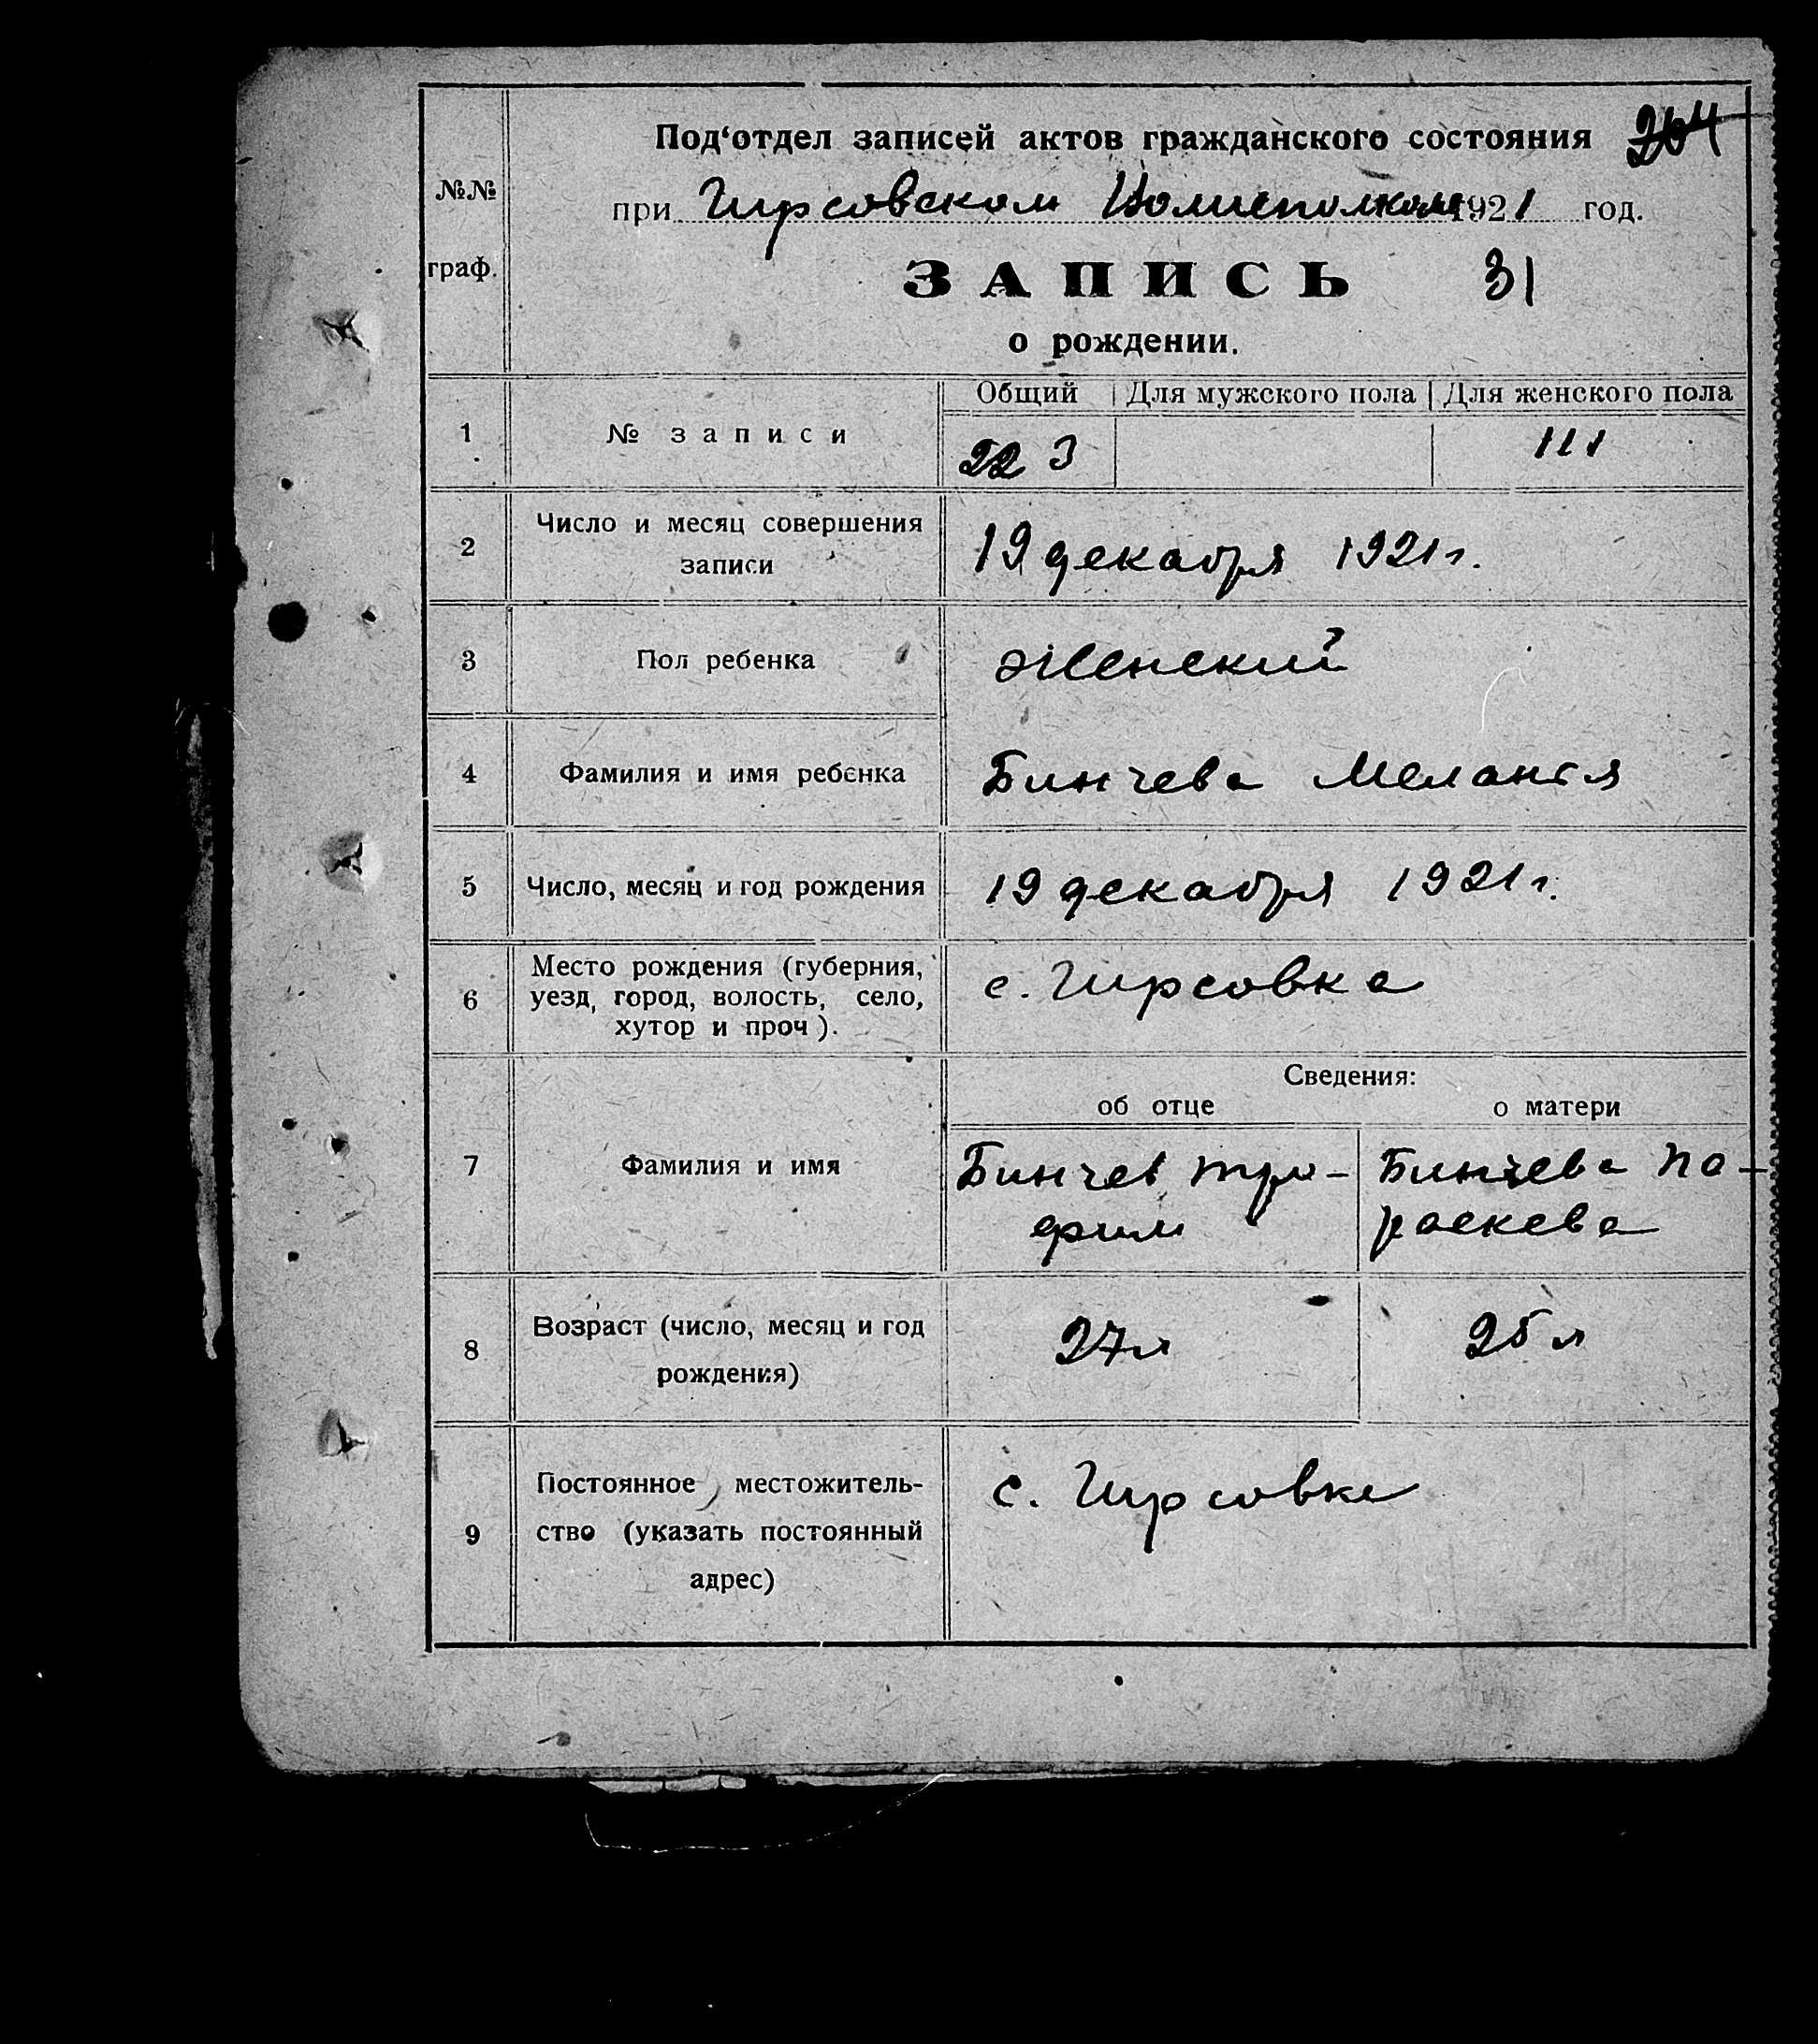 Под'отдел записей актов гражданского состояния 204
№№ граф.
при Гирсовском Волисполкоме 1921 год.
ЗАПИСЬ 31
о рождении.
Общий Для мужского пола Для женского пола
1 № записи 223 111
2 Число и месяц совершения
записи
19 декабря 1921 г.
3 Пол ребенка Женский
4 Фамилия и имя ребенка Бинчева Мелания
5 Число, месяц и год рождения 19 декабря 1921 г.
6 Место рождения (губерния,
уезд, город, волость, село,
хутор и проч).
с. Гирсовка
Сведения:
об отце о матери
7 Фамилия и имя
Бинчев Тро-
фим
Бинчева Па-
раскева
8 Возраст (число, месяц и год
рождения)
27 л 25 л
9 Постоянное местожитель-
ство (указать постоянный
адрес)
с. Гирсовка